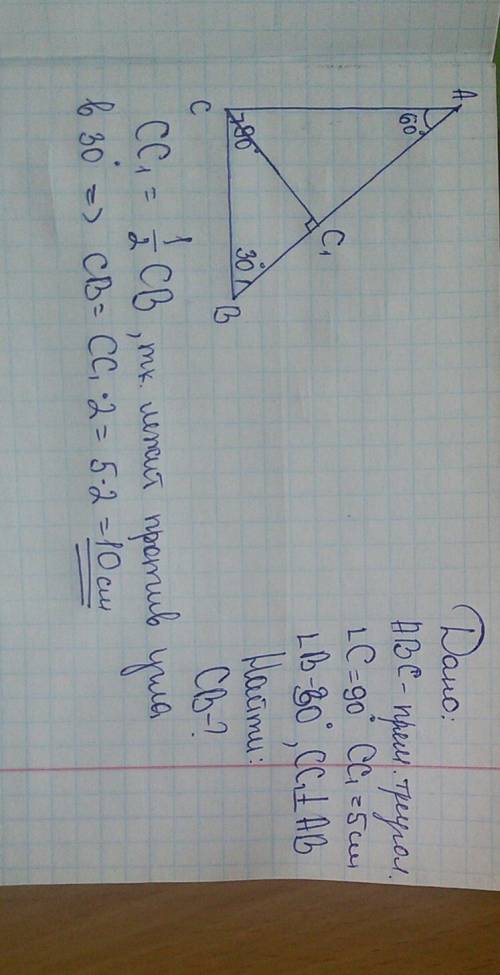 Дано:
ABC - прям. треугол.
∟C = 90° CC₁ = 5 см
∟B = 30°, CC₁⊥AB
Найти:
CB - ?
A
60°
C₁
C
90°
30°
B
CC₁ = 1/2 CB, тк. лежит против угла
в 30° => CB = CC₁ · 2 = 5 · 2 = 10 см